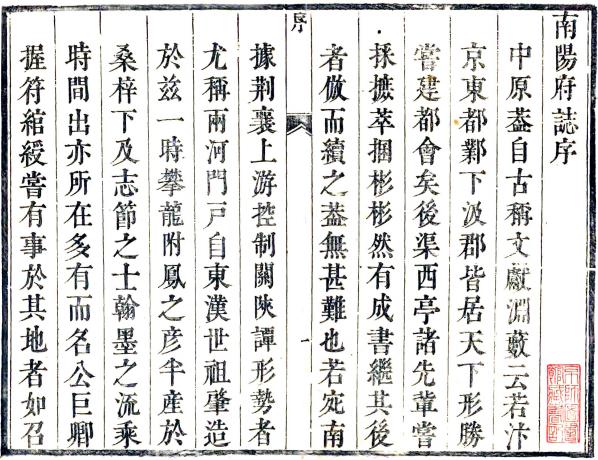 南陽府誌序
中原葢自古稱文獻淵藪云若汴
京東都鄴下汲郡皆居天下形勝
嘗建都會矣後渠西亭諸先輩嘗
採摭萃捆彬彬然有成書繼其後
者倣而續之葢無甚難也若宛南
序
一
據荆襄上游控制關陝譚形勢者
尤稱兩河門戶自東漢世祖肇造
於兹一時攀龍附鳳之彦半產於
桑梓下及志節之士翰墨之流乘
時間出亦所在多有而名公巨卿
握符綰綬嘗有事於其地者如召